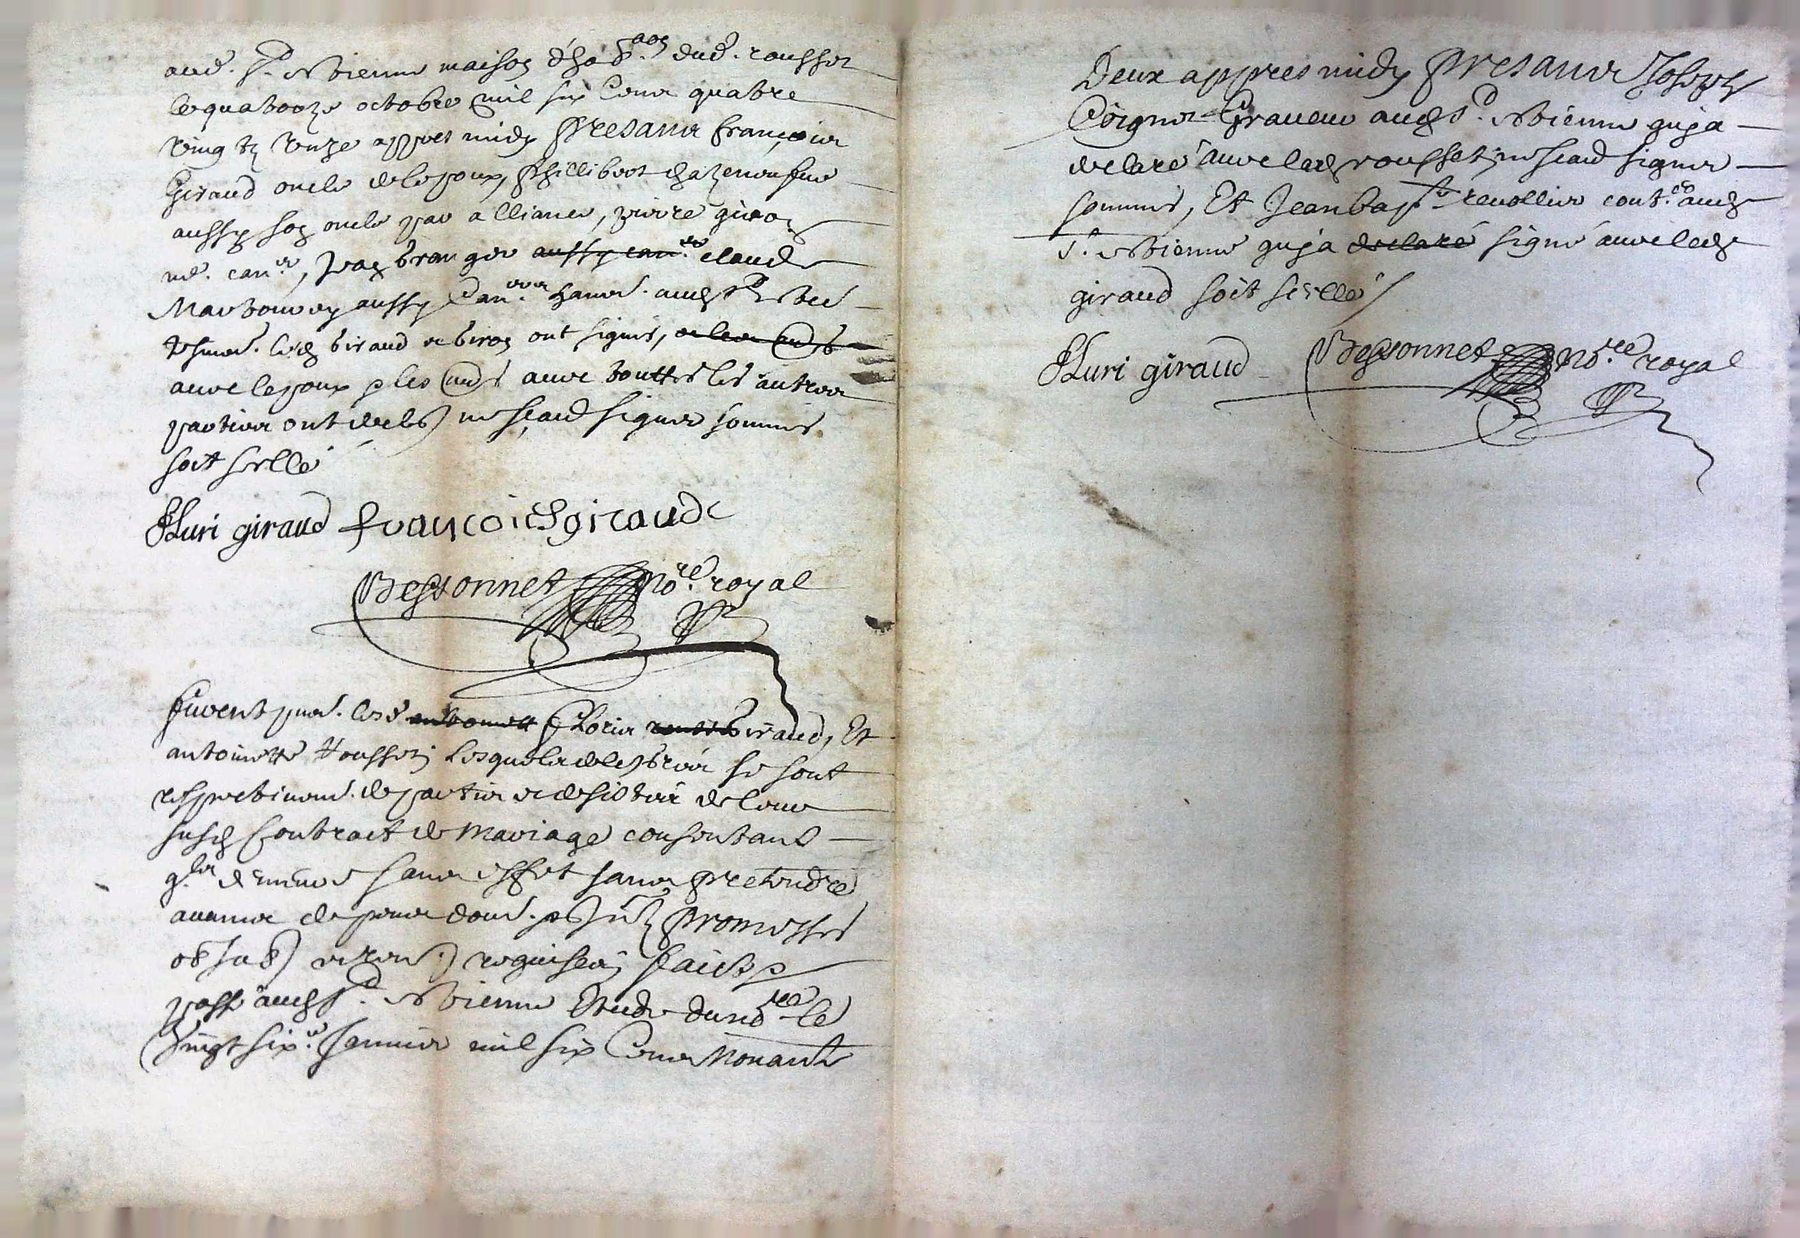 aud. St. Estienne maison d'habaon dud. rousset
le quatorze octobre mil six Cens quatre
vingtz unze appres midy Presans françois
Giraud oncle de lepoux, Phillibert chazeneufue
aussy son oncle par alliance, pierre giron
md. canier, Jean branger aussy canier claude
aussy canier habit. aud St Est.
tesmoins. lesd giraud et giron ont signés,
avec lepoux les autres
parties ont declaré ne sçavoir signer sommés
soit scellé
fluri giraud françois giraud
Bessonnet nore. royal
furent pnts. lesd floris giraud, Et
antoinette Rousset, Lesquels de leur gré se sont
respectivemt. departis et desistés de leur
susd Contract de Mariage consentans
quil demeure sans effet sans pretendre
aucuns depens dom. Promesses
oblig. requises faict &
passé aud St. Estienne Etude dud nore le
Vingt sixe. Janvier mil six Cens Nonante
Deux appres midy Presans Joseph
Coignet Graveur aud St. Estienne qui a
declaré avec lad rousset ne scavoir signer
sommés, Et Jean bapte revollier cont. aud
St. Estienne qui a declaré signé avec led
giraud soit scellé
fluri giraud Bessonnet nore. royal